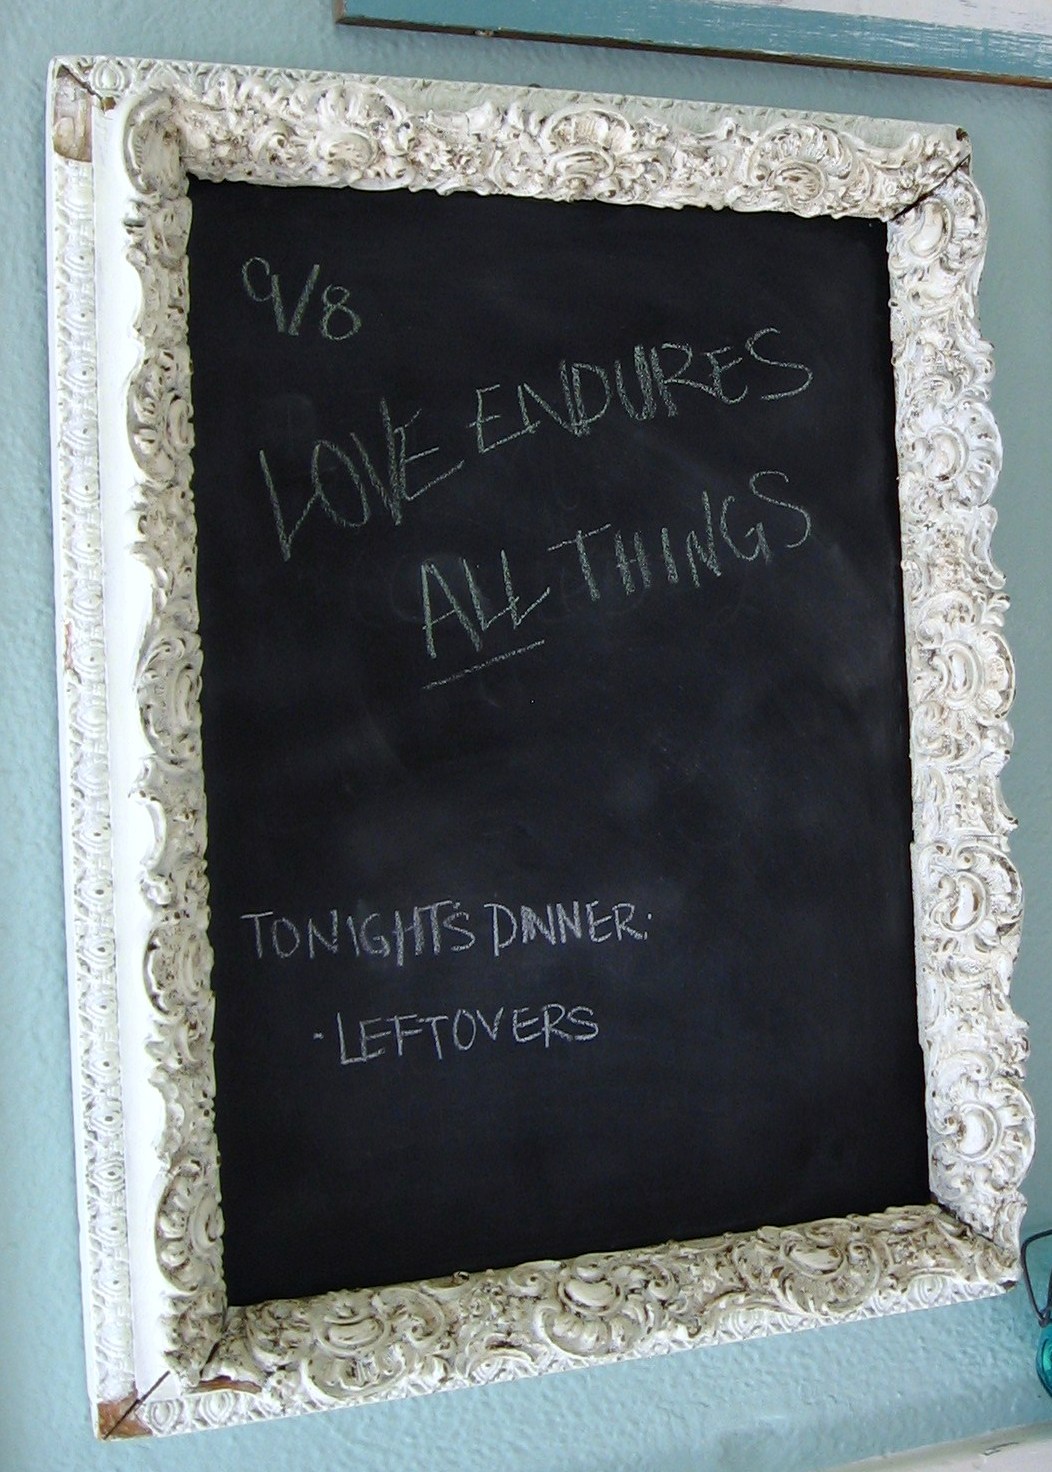 9/8
LOVE ENDURES
ALL THINGS
TONIGHT'S DINNER:
· LEFTOVERS